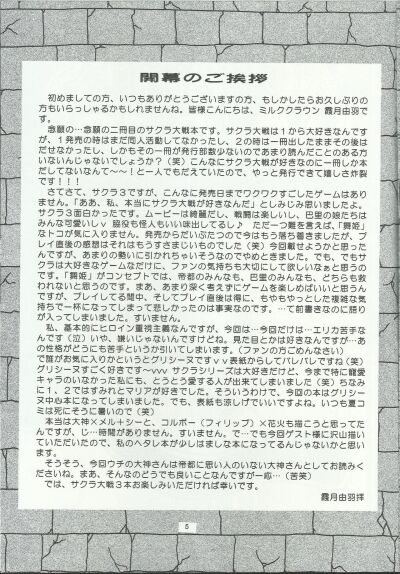 開幕のご挨拶
初めましての方、いつもありがとうございますの方、もしかしたらお久しぶりの
方もいらっしゃるかもしれませんね。皆様こんにちは、ミルククラウン 霧月由羽で
す。
念願の…念願の二冊目のサクラ大戦本です。サクラ大戦は１から大好きなんです
が、１発売の時はまだ同人活動してなかったし、２の時は一冊出したままその後は
だせなかったし、しかもその一冊が発行部数少ないのであまり読んだことのある方
いないんじゃないでしょうか？（笑）こんなにサクラ大戦が好きなのに一冊しか本
だしてないなんて～～！と一人でもだえていたので、やっと発行できて嬉しさ炸裂
です！！！
さてさて、サクラ３ですが、こんなに発売日までワクワクすごしたゲームはあり
ません。「ああ、私、本当にサクラ大戦が好きなんだ」としみじみ思いましたよ。
サクラ３面白かったです。ムービーは綺麗だし、戦闘は楽しいし、巴里の娘たちは
みんな可愛いしｖ 脇役も怪人もいい味出してるし♪ ただ一つ難を言えば、「舞姫」
なトコが気に入りません。発売からだいぶたつので今はもう落ち着きましたが、プ
レイ直後の感想はそれはもうすさまじいものでした（笑）今回載せようかと思った
んですが、あまりの勢いに引かれちゃいそうなのでやめときました。でも、でもサ
クラは大好きなゲームなだけに、ファンの気持ちも大切にして欲しいなぁと思うの
です。「舞姫」がコンセプトでは、帝都のみんなも、巴里のみんなも、どちらも救
われないと思うのです。まあ、あまり深く考えずにゲームを楽しめばいいと思うん
ですが、プレイしてる間中、そしてプレイ直後は得に、もやもやっとした複雑な気
持ちで一杯になってしまって悲しかったのは事実なのです。…て前書きなのに語り
が入ってしまいました。すいません。
私、基本的にヒロイン重視主義なんですが、今回は…今回だけは…エリカ苦手な
んです（泣）いや、嫌いじゃないんですけどね。見た目とかは好きなんですが…あ
の性格がどうにも苦手というか引いてしまいます。（ファンの方ごめんなさい）
で誰がお気に入りかというとグリシーヌですｖｖ表紙からしてバレバレですね（笑）
グリシーヌすごく好きです～ｖｖｖ サクラシリーズは大好きだけど、今まで特に寵愛
キャラのいなかった私にも、とうとう愛する人が出来てしまいました（笑）ちなみ
に１、２ではすみれとマリアが好きでした。そういうわけで、今回の本はグリシー
ヌ中心本になってしまいました。でも、表紙も涼しげでいいですよね。いつも夏コ
ミは死にそうに暑いので（笑）
本当は大神×メル＋シーと、コルボー（フィリップ）×花火も描こうと思ってた
んですが、じ…時間がありません。すいません。で…でも今回ゲスト様に沢山描い
ていただいたので、私のヘタレ本が少しはましな本になってるんじゃないかと思い
ます。
そうそう、今回ウチの大神さんは帝都に思い人のいない大神さんとしてお読みく
ださいね。まあ、そんなのどうでも良いことなんですが一応…（苦笑）
では、サクラ大戦３本お楽しみいただければ幸いです。
霧月由羽拝
5